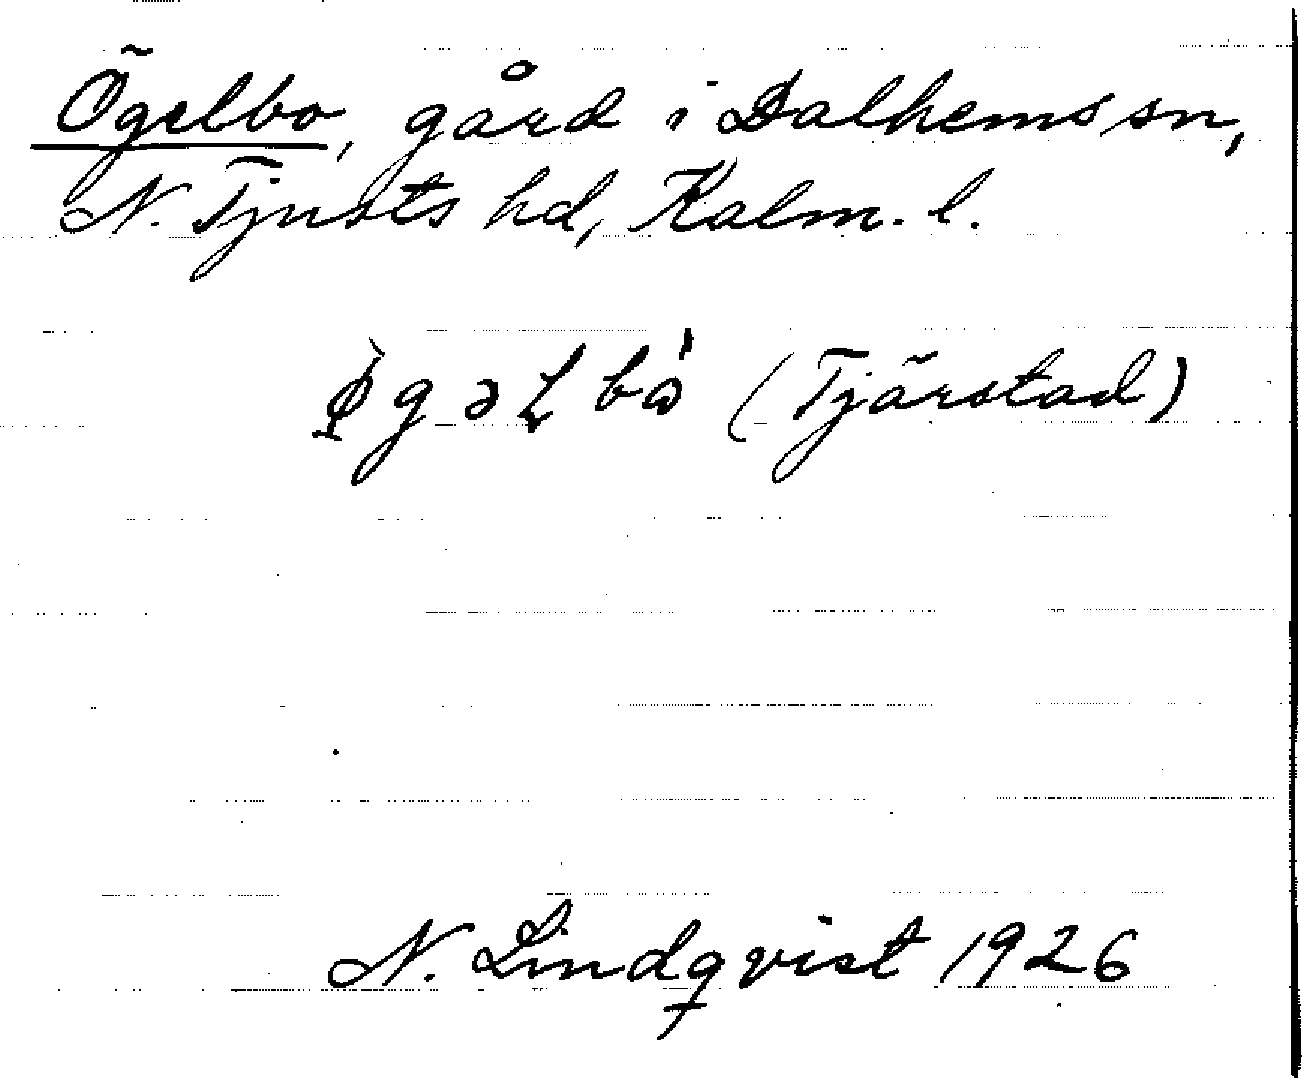 Ögelbo, gård i Dalhems sn,
N. Tjusts hd, Kalm. l.
(Tjärstad)
N. Lindqvist 1926